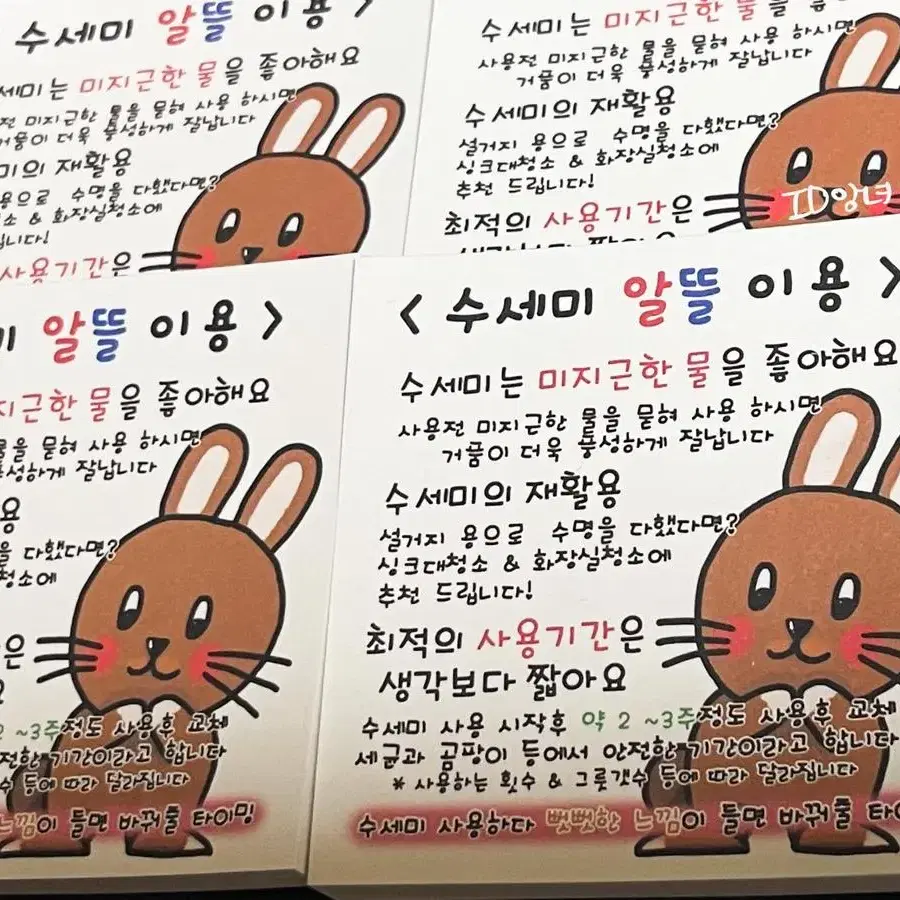 수세미 알뜰 이용 >
세미는 미지근한 물을 좋아해요
전 미지근한 물을 묻혀 사용 하시면
거품이 더욱 풍성하게 잘납니다
미의 재활용
용으로 수명을 다했다면?
소 & 화장실청소에
니다!
사용기간은
수세미는 미지근한 물을
사용전 미지근한 물을 묻혀 사용 하시면
거품이 더욱 풍성하게 잘납니다
수세미의 재활용
설거지 용으로 수명을 다했다면?
싱크대청소 & 화장실청소에
추천 드립니다!
최적의 사용기간은
생각보다 짧아요
ID앙녀
알뜰 이용 >
지근한 물을 좋아해요
물을 묻혀 사용 하시면
풍성하게 잘납니다
용
을 다했다면?
청소에
은
2 ~3주정도 사용후 교체
전한 기간이라고 합니다
수 등에 따라 달라집니다
느낌이 들면 바꿔줄 타이밍
< 수세미 알뜰 이용 >
수세미는 미지근한 물을 좋아해요
사용전 미지근한 물을 묻혀 사용 하시면
거품이 더욱 풍성하게 잘납니다
수세미의 재활용
설거지 용으로 수명을 다했다면?
싱크대청소 & 화장실청소에
추천 드립니다!
최적의 사용기간은
생각보다 짧아요
수세미 사용 시작후 약 2 ~3주정도 사용후 교체
세균과 곰팡이 등에서 안전한 기간이라고 합니다
* 사용하는 횟수 & 그릇갯수 등에 따라 달라집니다
수세미 사용하다 뻣뻣한 느낌이 들면 바꿔줄 타이